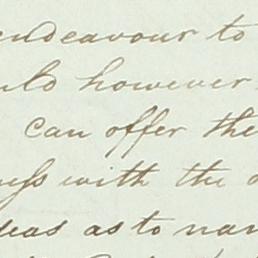 endeavour to
however
can offer the
with the
ideas as to